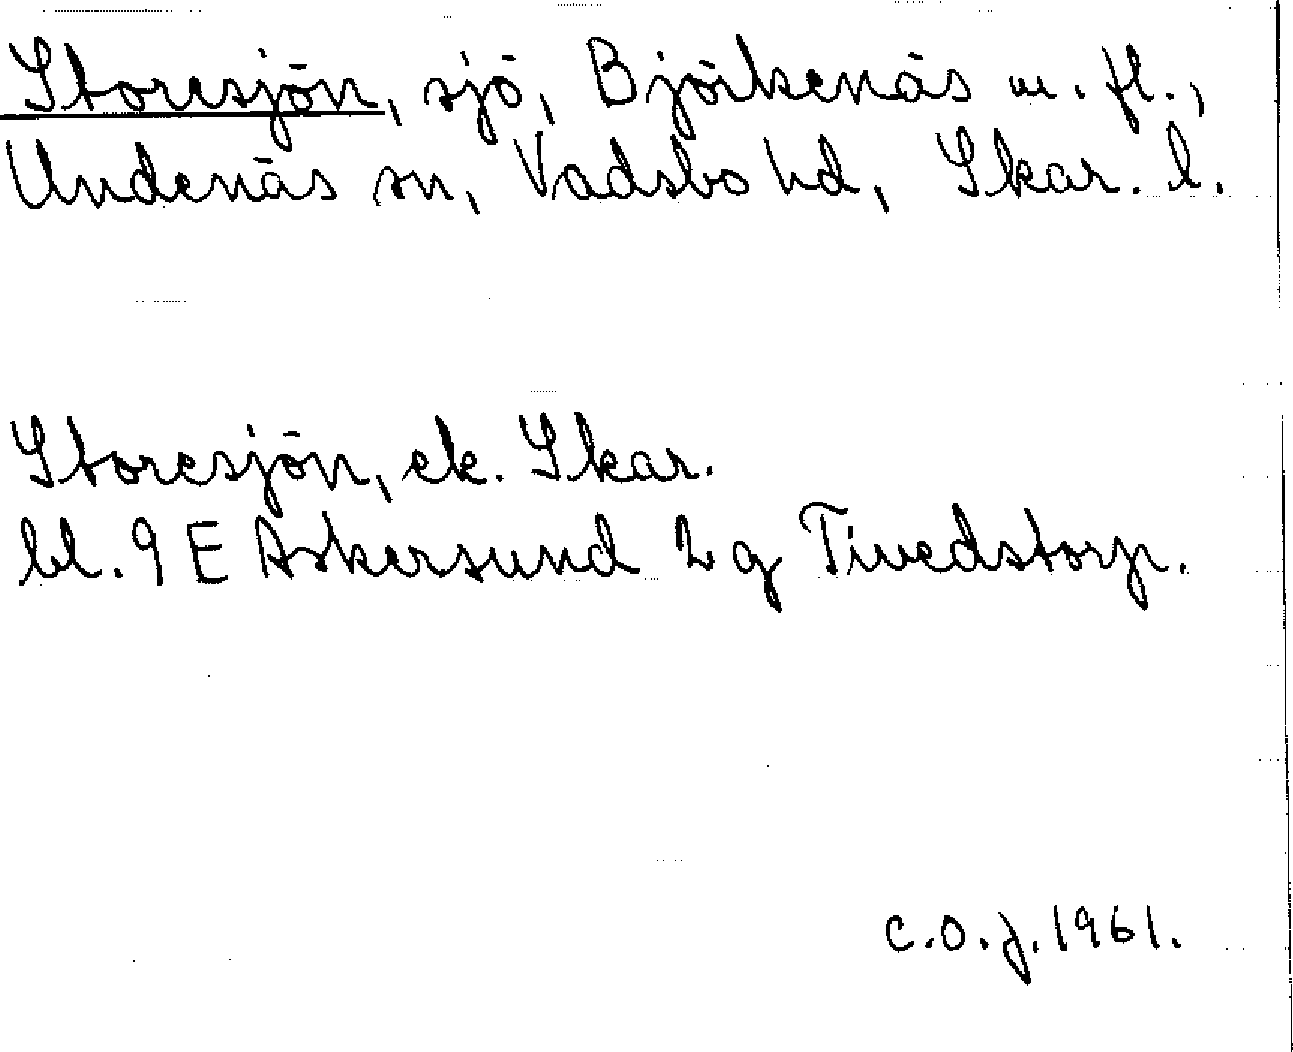 Storesjön, sjö, Björkenäs m. fl.,
Undenäs sn, Vadsbo hd, Skar. l.
Storesjön, ek. Skar.
bl. 9 E Askersund 2 g Tivedstorp.
C.O.J. 1961.